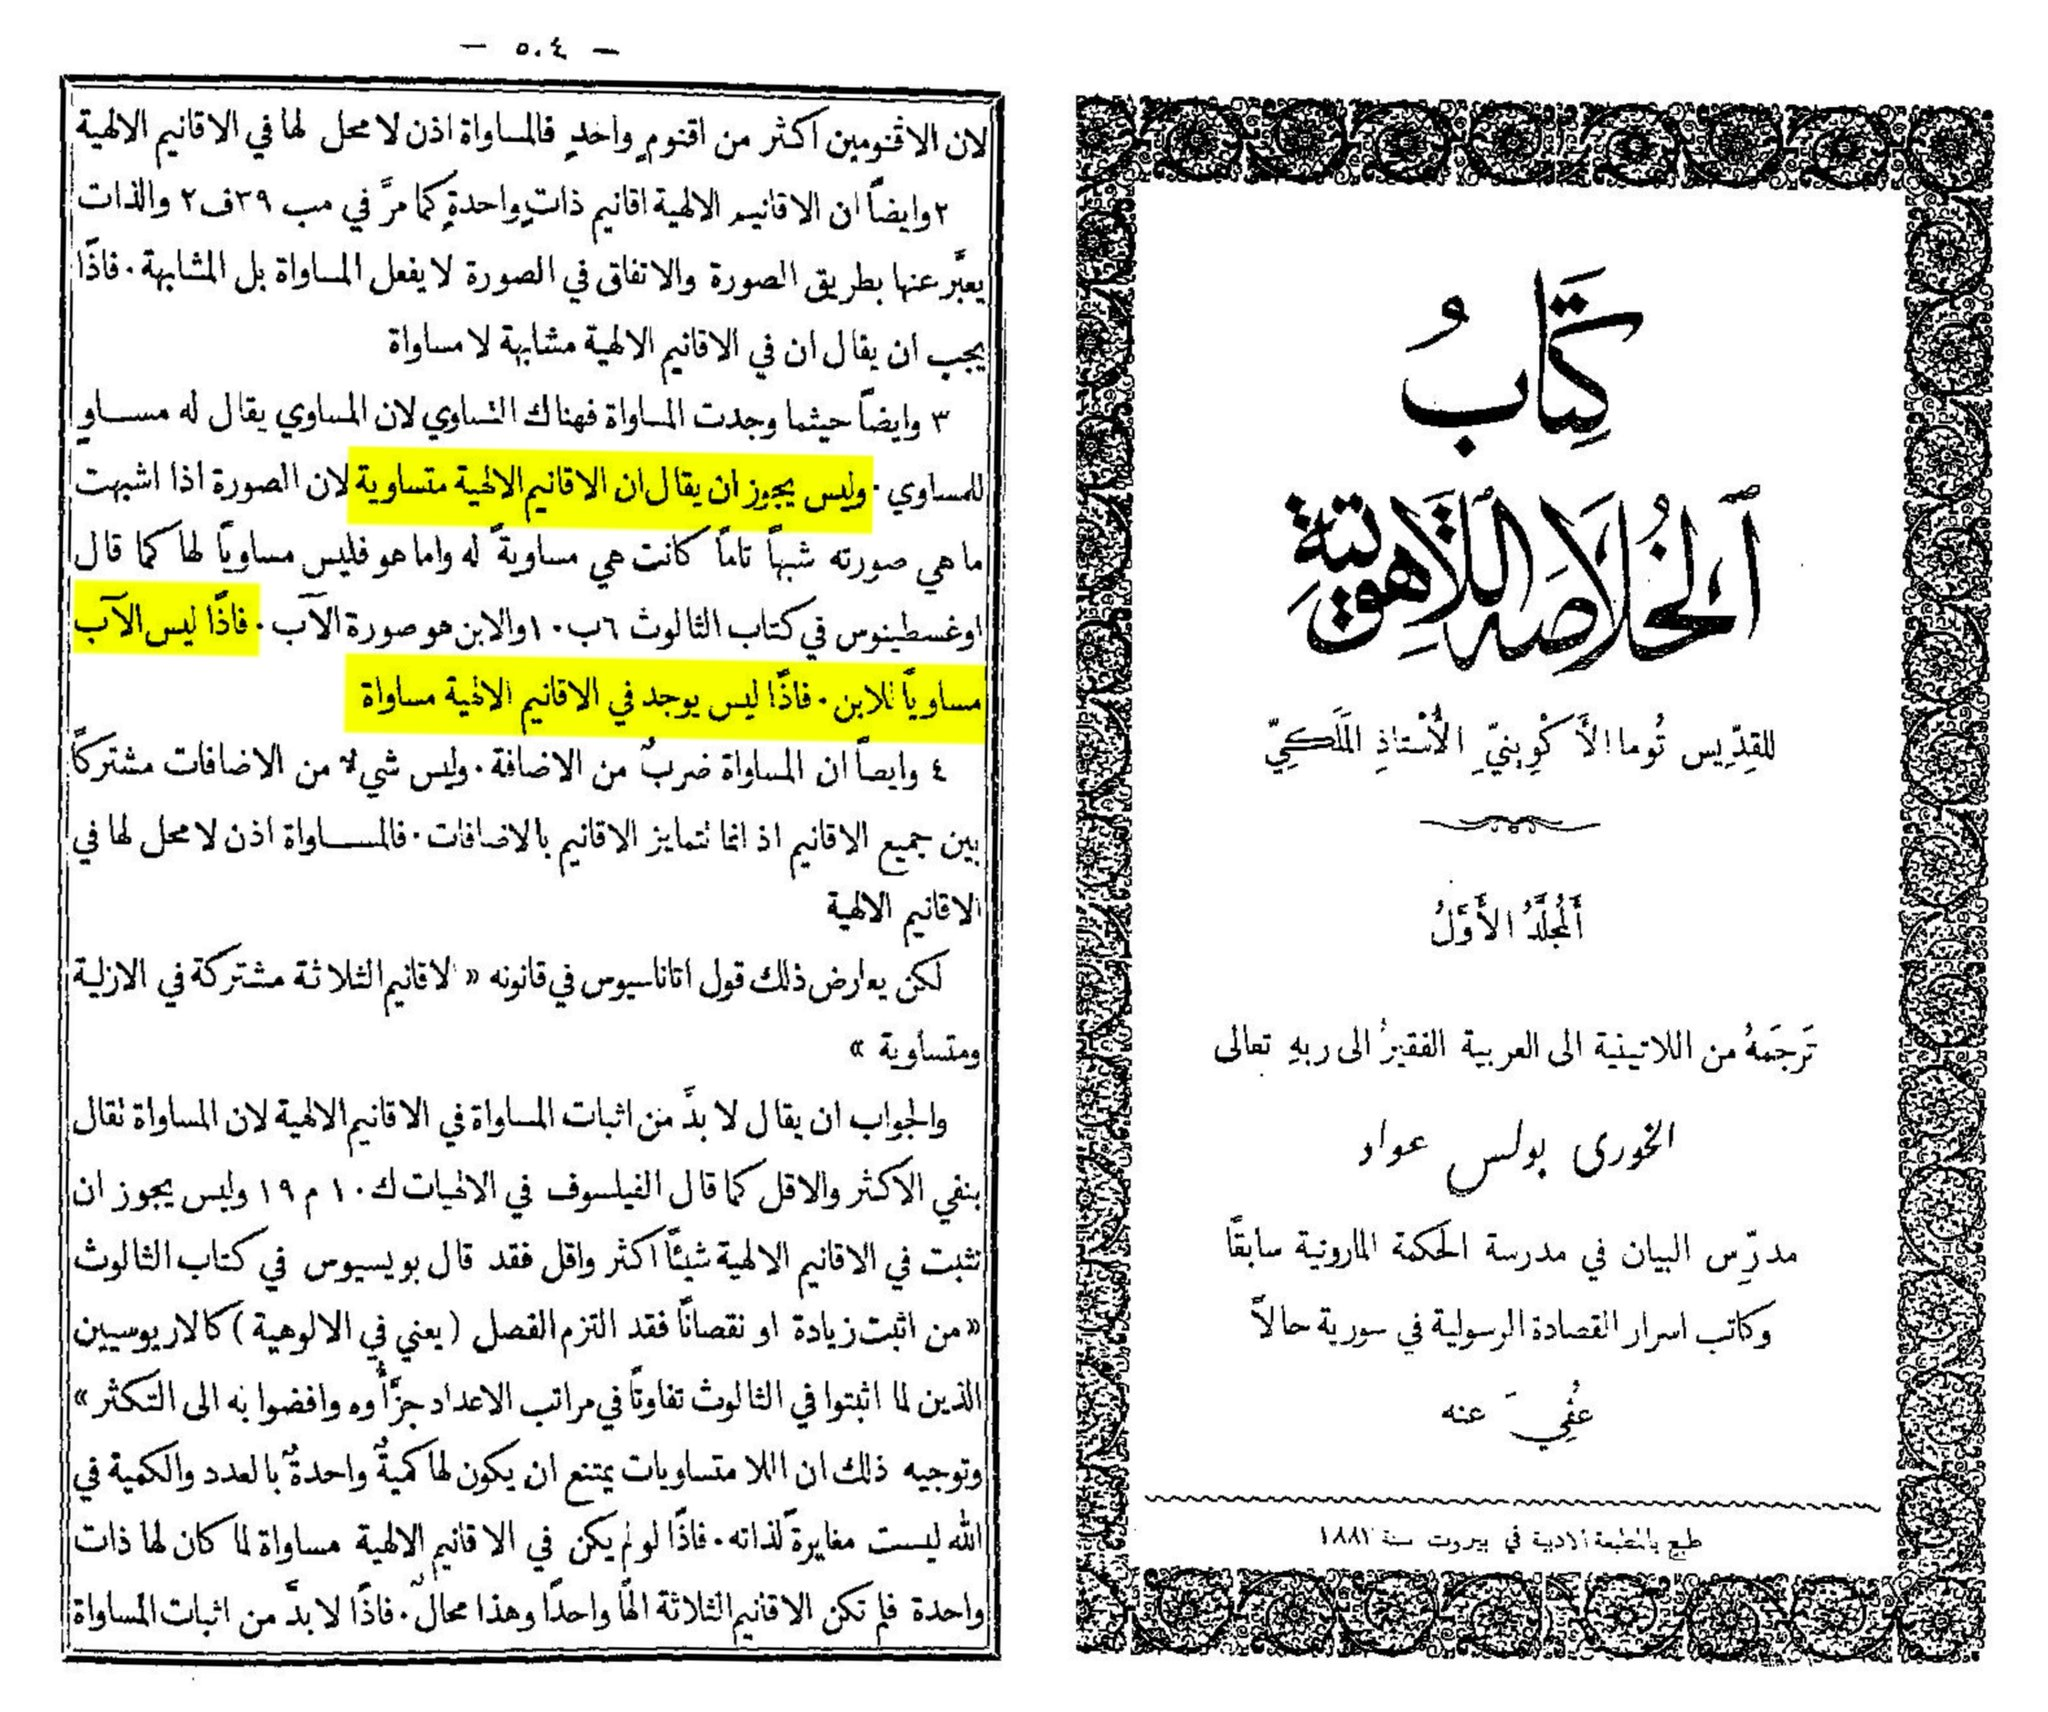 كِتَابُ
أَلْخُلَاصَه اللَّاهُوتِيَّةِ
للقِدِّيس تُوما الأَكْوِينيِّ الأُسْتاذِ المَلَكيِّ
أَلمُجلَّدُ الأَوَّلُ
تَرجَمَهُ من اللاتينية الى العربية الفقيرُ الى ربهِ تعالى
الخوري بولس عواد
مدرِّس البيان في مدرسة الحكمة المارونية سابقًا
وكاتب اسرار القصادة الرسولية في سورية حالاً
عُفِيَ عنه
طبع بالمطبعة الادبية في بيروت سنة ١٨٨١
— ٥٠٤ —
لان الاقنومين اكثر من اقنومٍ واحدٍ فالمساواة اذن لا محل لها في الاقانيم الالهية
٢ وايضاً ان الاقانيم الالهية اقانيم ذاتٍ واحدةٍ كما مرَّ في مب ٣٩ ف ٢ والذات
يعبَّر عنها بطريق الصورة والاتفاق في الصورة لا يفعل المساواة بل المشابهة . فاذًا
يجب ان يقال ان في الاقانيم الالهية مشابهة لا مساواة
٣ وايضاً حيثما وجدت المساواة فهناك التساوي لان المساوي يقال له مساوٍ
للمساوي . وليس يجوز ان يقال ان الاقانيم الالهية متساوية لان الصورة اذا اشبهت
ما هي صورته شبهاً تاماً كانت هي مساويةً له واما هو فليس مساوياً لها كما قال
اوغسطينوس في كتاب الثالوث ٦ ب ١٠ والابن هو صورة الآب . فاذًا ليس الآب
مساوياً للابن . فاذًا ليس يوجد في الاقانيم الالهية مساواة
٤ وايضاً ان المساواة ضربٌ من الاضافة . وليس شيءٌ من الاضافات مشتركًا
بين جميع الاقانيم اذ انما تتمايز الاقانيم بالاضافات . فالمساواة اذن لا محل لها في
الاقانيم الالهية
لكن يعارض ذلك قول اتاناسيوس في قانونه « الاقانيم الثلاثة مشتركة في الازلية
ومتساوية »
والجواب ان يقال لا بدَّ من اثبات المساواة في الاقانيم الالهية لان المساواة تقال
بنفي الاكثر والاقل كما قال الفيلسوف في الالهيات ك ١٠ م ١٩ وليس يجوز ان
نثبت في الاقانيم الالهية شيئًا اكثر واقل فقد قال بويسيوس في كتاب الثالوث
« من اثبت زيادة او نقصانًا فقد التزم الفصل (يعني في الالوهية) كالاريوسيين
الذين لما اثبتوا في الثالوث تفاوتًا في مراتب الاعداد جزَّأُوه وافضوا به الى التكثر »
وتوجيه ذلك ان اللا متساويات يمتنع ان يكون لها كميةٌ واحدةٌ بالعدد والكمية في
الله ليست مغايرةً لذاته . فاذًا لو لم يكن في الاقانيم الالهية مساواة لما كان لها ذات
واحدة فلم تكن الاقانيم الثلاثة الهًا واحدًا وهذا محالٌ . فاذًا لا بدَّ من اثبات المساواة